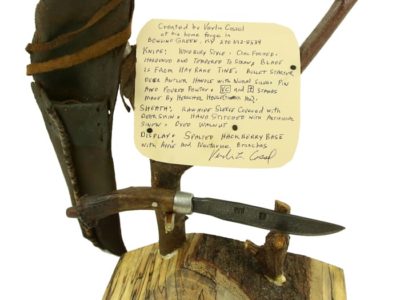 Created by Verlin Casol
at his home forge in
Bowling Green, KY 270-842-8534
Knife: Woodbury Style - Coal Forged -
Hardened and Tempered to Straw, Blade
is From Hay Rake Tine. Bullet Starter
Deer Antler Handle with Nickel Silver Pin
and Poured Pewter - VC and Stamps
made by Herschel House
Sheath: Rawhide Sleeve Covered with
Deer Skin - Hand Stitched with Artificial
Sinew - Dyed Walnut
Display: Spalted Hackberry Base
with Apple and Nectarine Branches